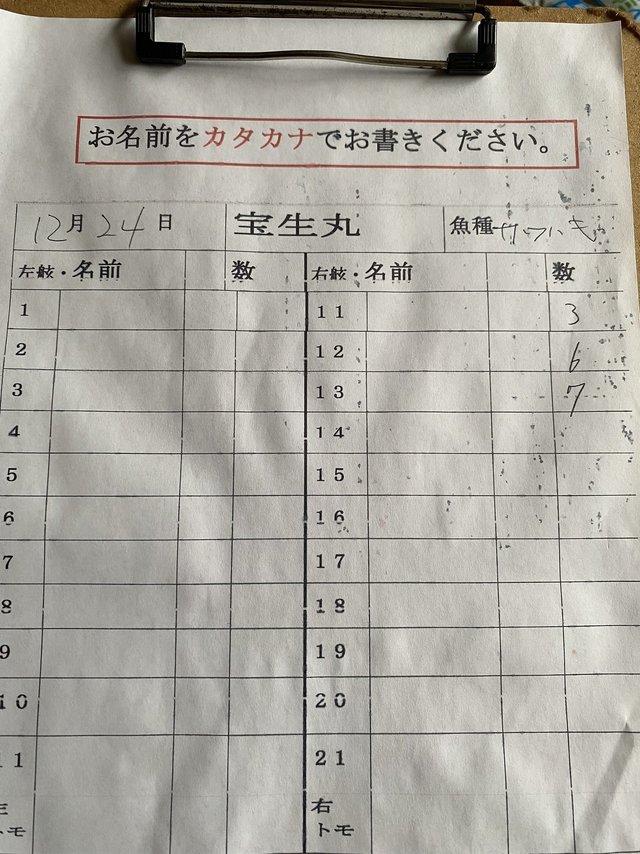 お名前をカタカナでお書きください。
12月24日 宝生丸 魚種
左舷・名前 数 右舷・名前 数
1 11 3
2 12 6
3 13 7
4 14
5 15
6 16
7 17
8 18
9 19
10 20
11 21
右
トモ トモ